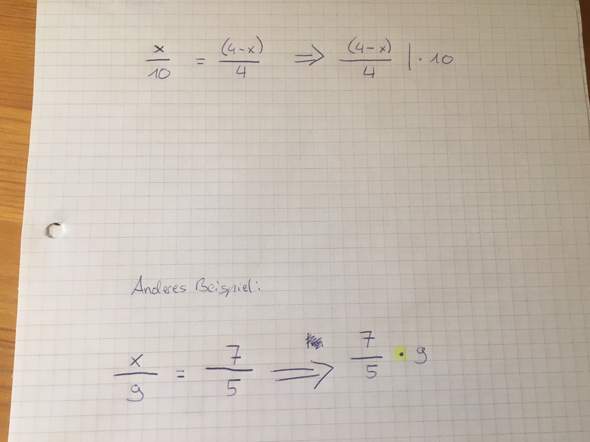 x/10 = (4-x)/4 ⇒ (4-x)/4 | · 10
Anderes Beispiel:
x/9 = 7/5 ⇒ 7/5 · 9